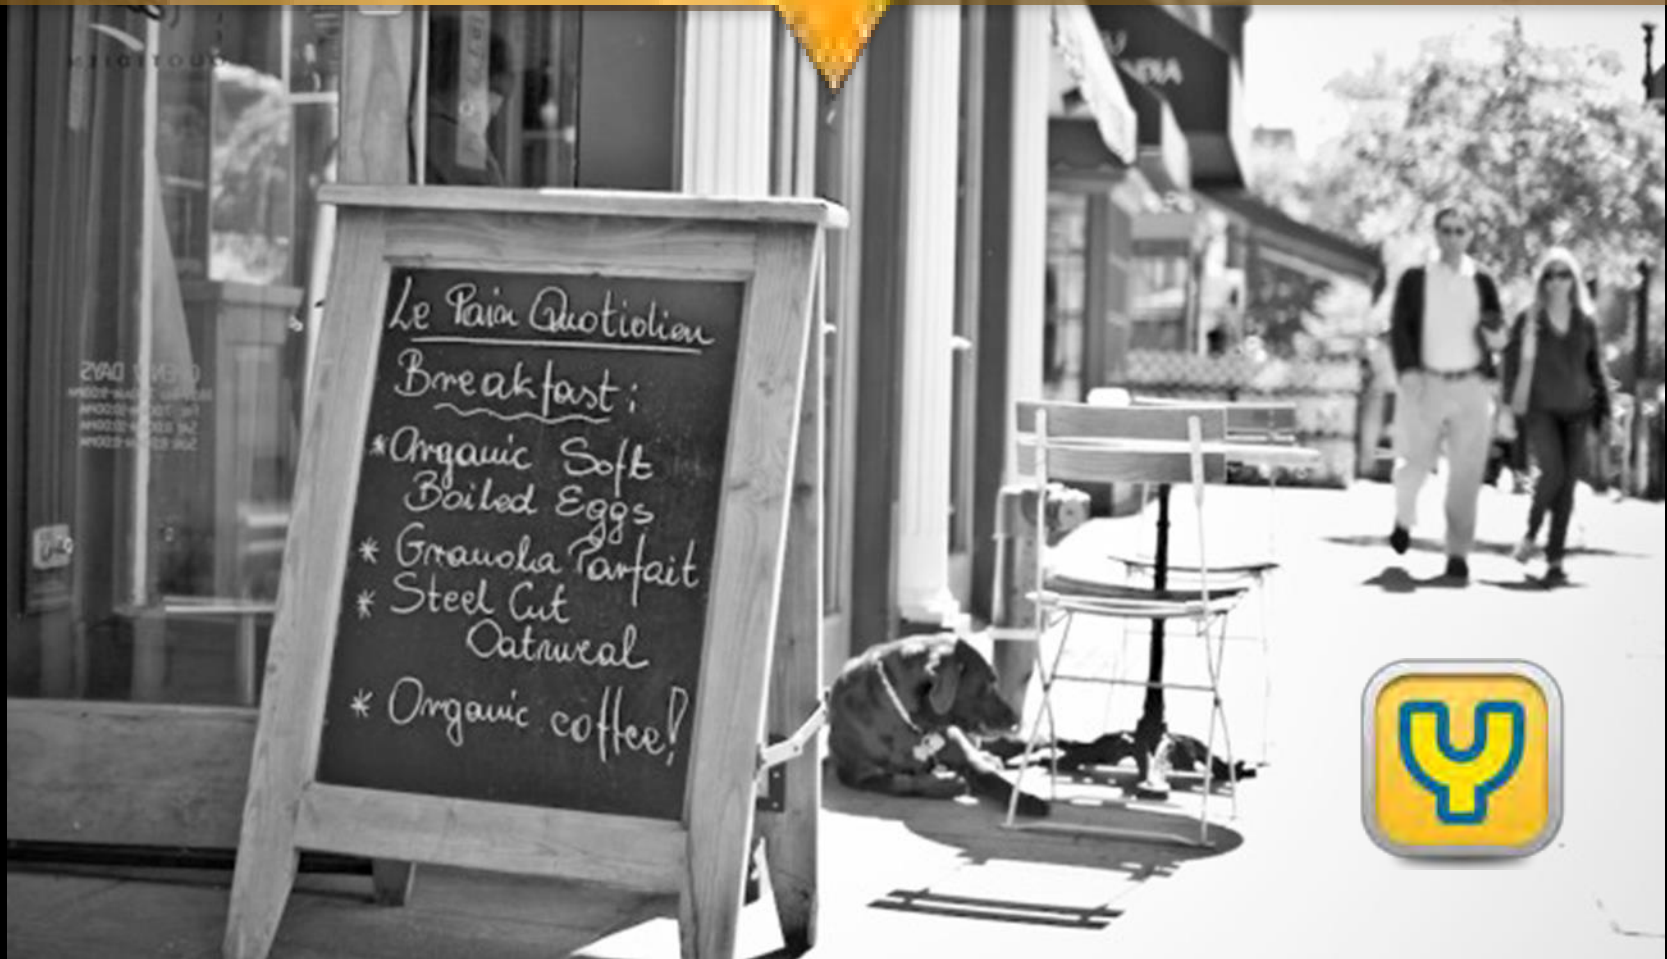 QUOTIDIEN
Le Pain Quotidien
Breakfast:
*Organic Soft
Boiled Eggs
* Granola Parfait
* Steel Cut
Oatmeal
* Organic coffee!
OPEN 7 DAYS
Y